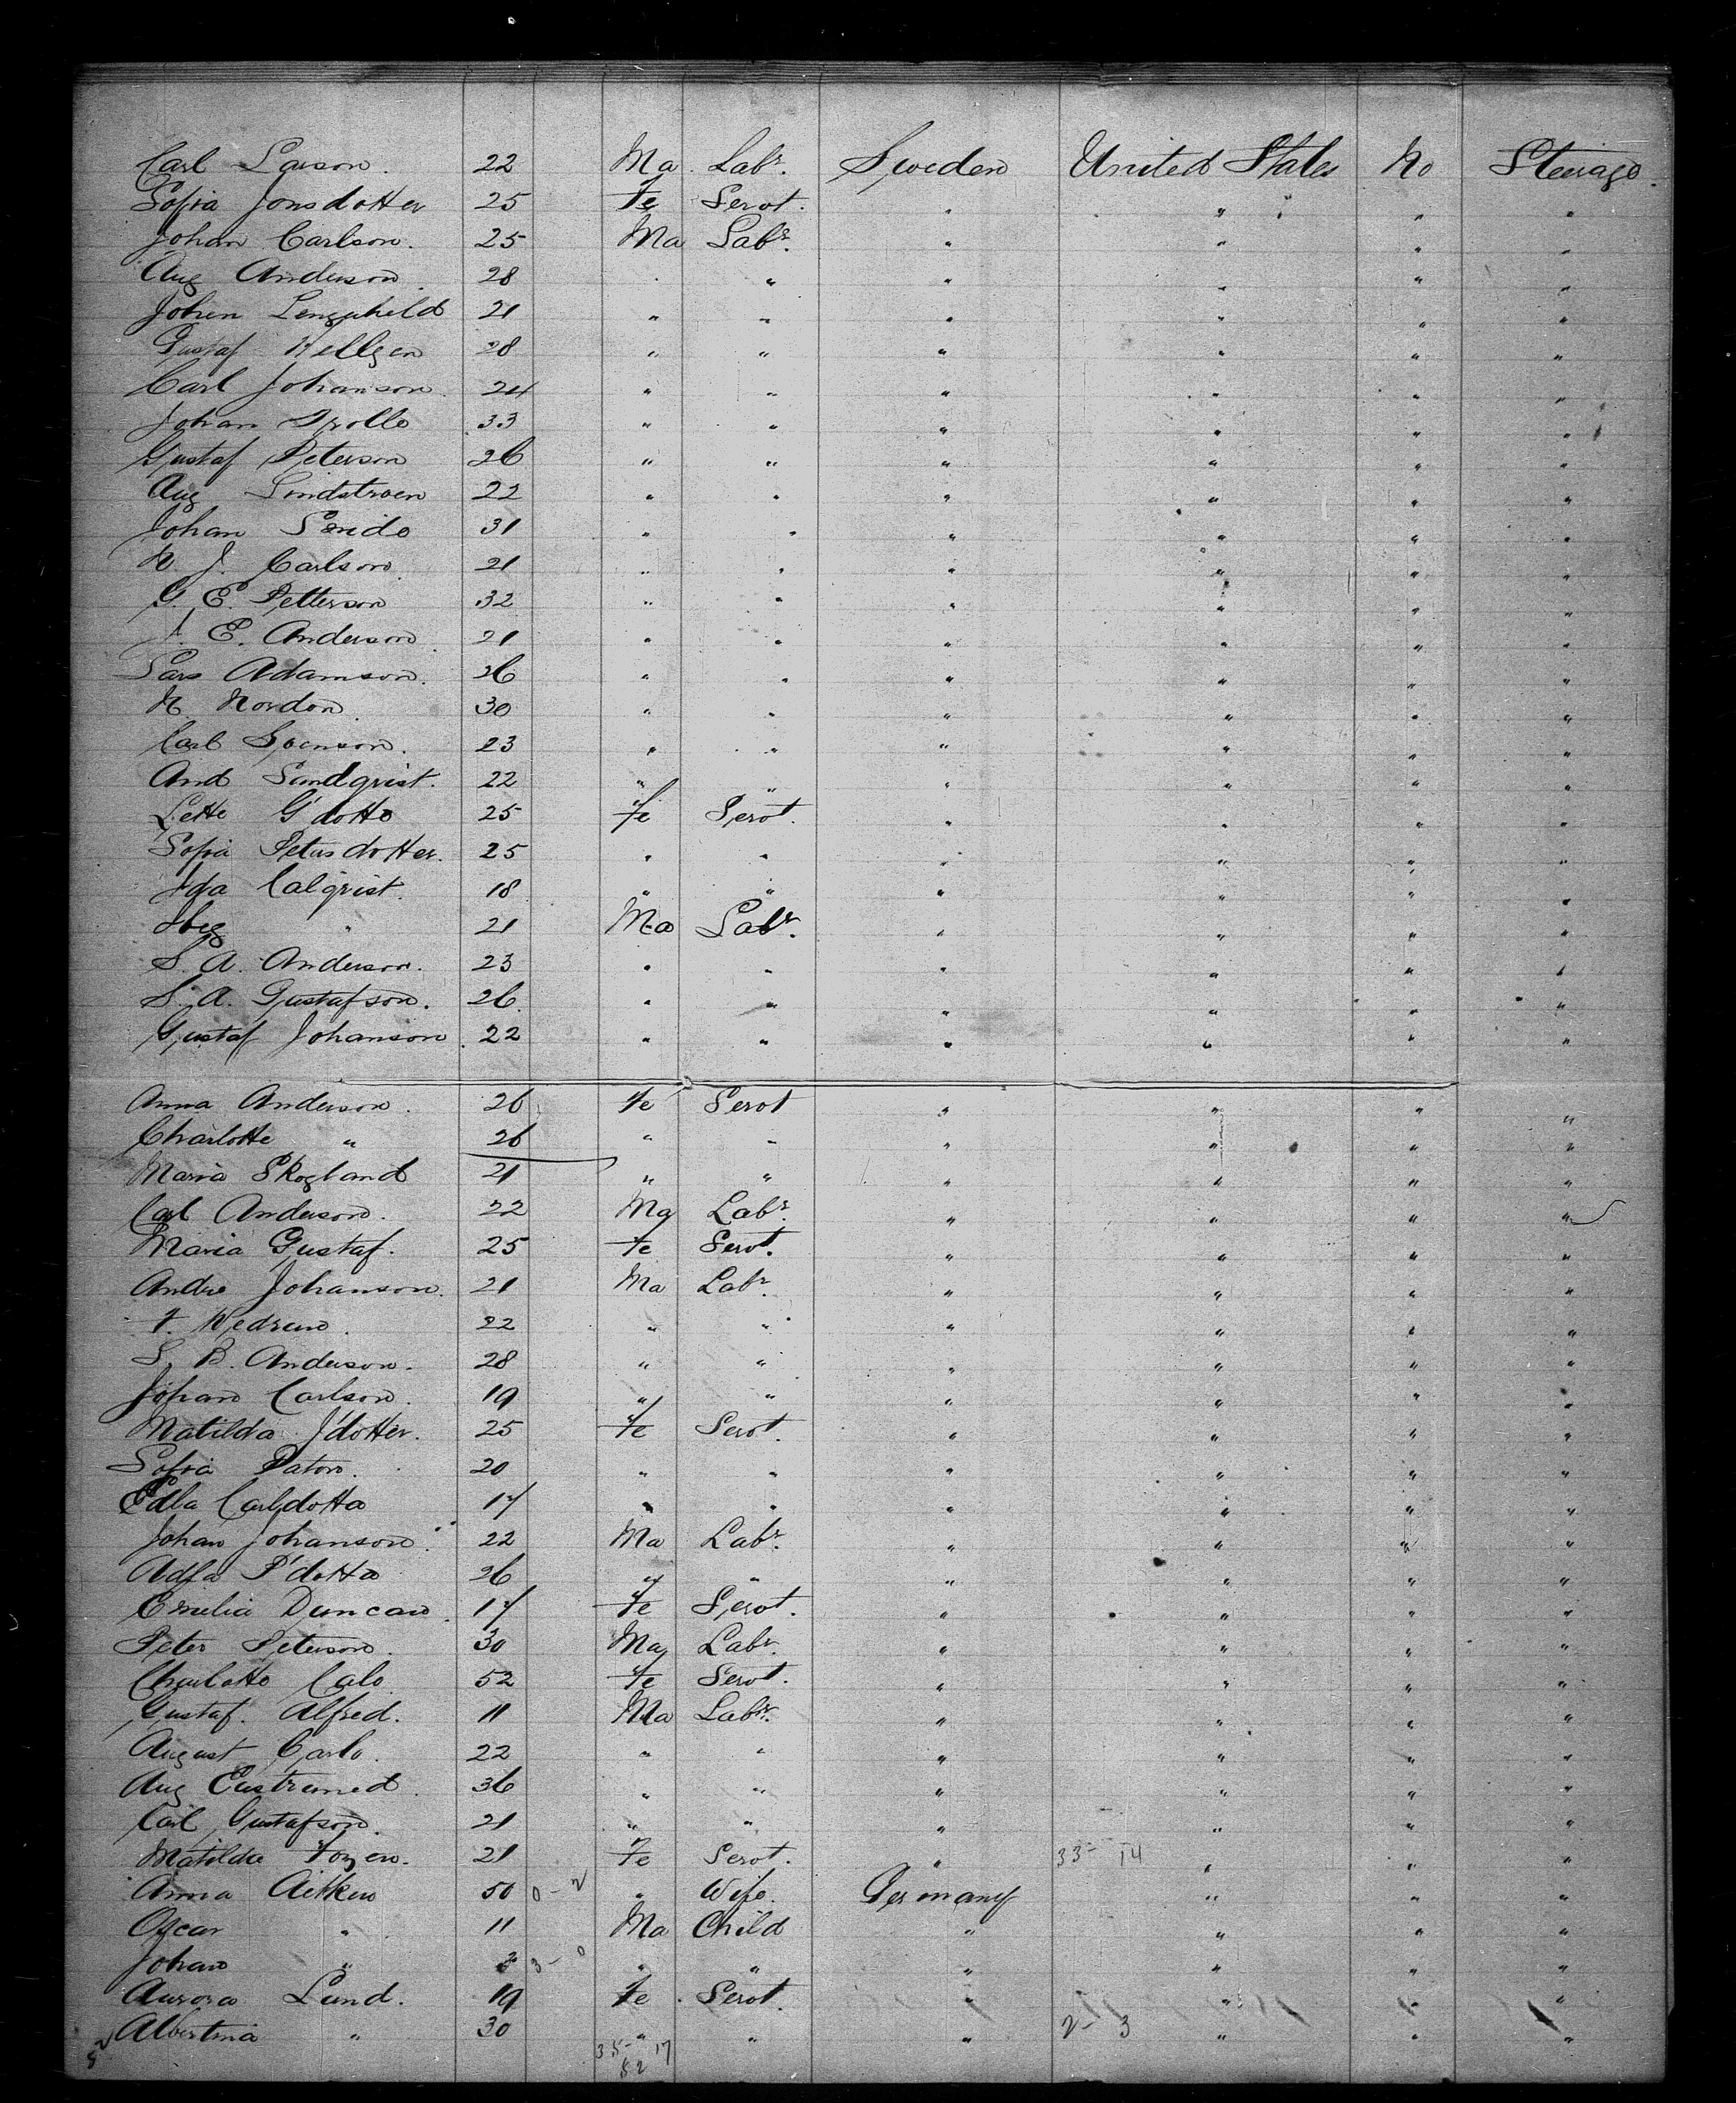 Carl Larson. 22 Ma Labr. Sweden United States No Steerage.
Sofia Jonsdotter 25 Fe Servt. " " " "
Johan Carlson. 25 Ma Labr. " " " "
Aug Anderson. 28 " " " " " "
Johan 21 " " " " " "
Gustaf Hellgen 28 " " " " " "
Carl Johanson. 24 " " " " " "
Johan Trolle 33 " " " " " "
Gustaf Peterson 26 " " " " " "
Aug Lindstroen 22 " " " " " "
Johan 31 " " " " " "
N. J. Carlson 21 " " " " " "
G. E. Petterson 32 " " " " " "
J. E. Anderson. 21 " " " " " "
Lars Adamson. 26 " " " " " "
N Nordon. 30 " " " " " "
Carl Svenson. 23 " " " " " "
And Sandqvist. 22 " " " " " "
Lette G'dotte 25 Fe Servt. " " " "
Sofia Petersdotter. 25 " " " " " "
Ida Calqvist. 18 " " " " " "
" 21 Ma Labr. " " " "
S. A. Anderson. 23 " " " " " "
S. A. Gustafson. 26. " " " " " "
Gustaf Johanson. 22 " " " " " "
Anna Anderson. 26 Fe Servt " " " "
Charlotte " 26 " " " " " "
Maria Skogland 21 " " " " " "
Carl Anderson. 22 Ma Labr. " " " "
Maria Gustaf. 25 Fe Servt. " " " "
Andre Johanson. 21 Ma Labr. " " " "
F. 22 " " " " " "
S. B. Anderson. 28 " " " " " "
Johan Carlson. 19 " " " " " "
Matilda J'dotter. 25 Fe Servt. " " " "
Sofia Paton. 20 " " " " " "
Edla Carlsdotta 17 " " " " " "
Johan Johanson. 22 Ma Labr. " " " "
Adfa P'dotta 26 " " " " " "
Emilia Duncan. 17 Fe Servt. " " " "
Peter Peterson. 30 Ma Labr. " " " "
Charlotte Calo 52 Fe Servt. " " " "
Gustaf. Alfred. 11 Ma Labr. " " " "
August Carlo. 22 " " " " " "
Aug 36 " " " " " "
Carl Gustafson. 21 " " " " " "
Matilda 21 Fe Servt. " 33- 14 " " "
Anna Aitken 50 0-2 " Wife. Germany " " "
Oscar " 11 Ma Child " " " "
Johan " 3 3-0 " " " " " "
Aurora Lund. 19 Fe Servt. " " " "
52 Albertina " 30 " " " 2- 3 " " "
35- 17
52